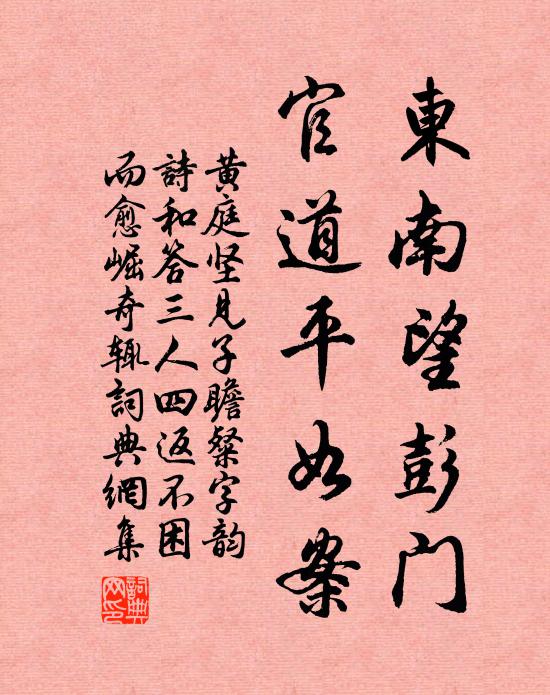 東南望彭門
官道平如案
黄庭坚見子瞻粲字韵
詩和答三人四返不困
而愈崛奇辄詞典網集
詞典网印